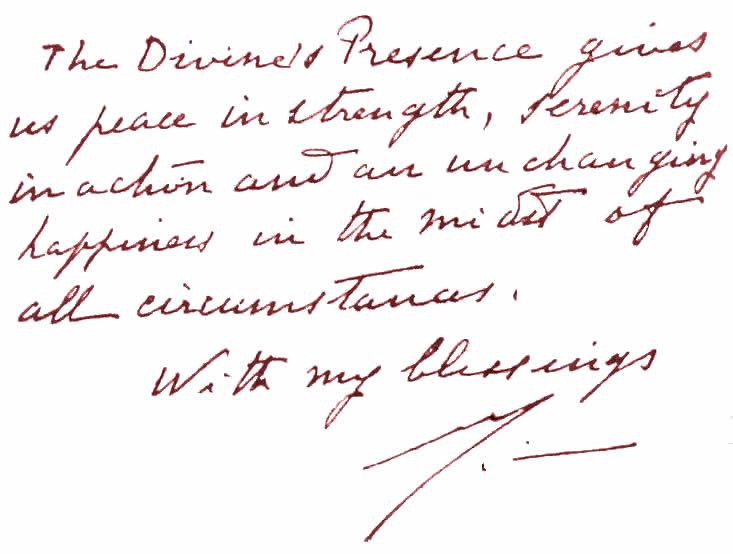 The Divine's Presence gives
us peace in strength, serenity
in action and an unchanging
happiness in the midst of
all circumstances.
With my blessings